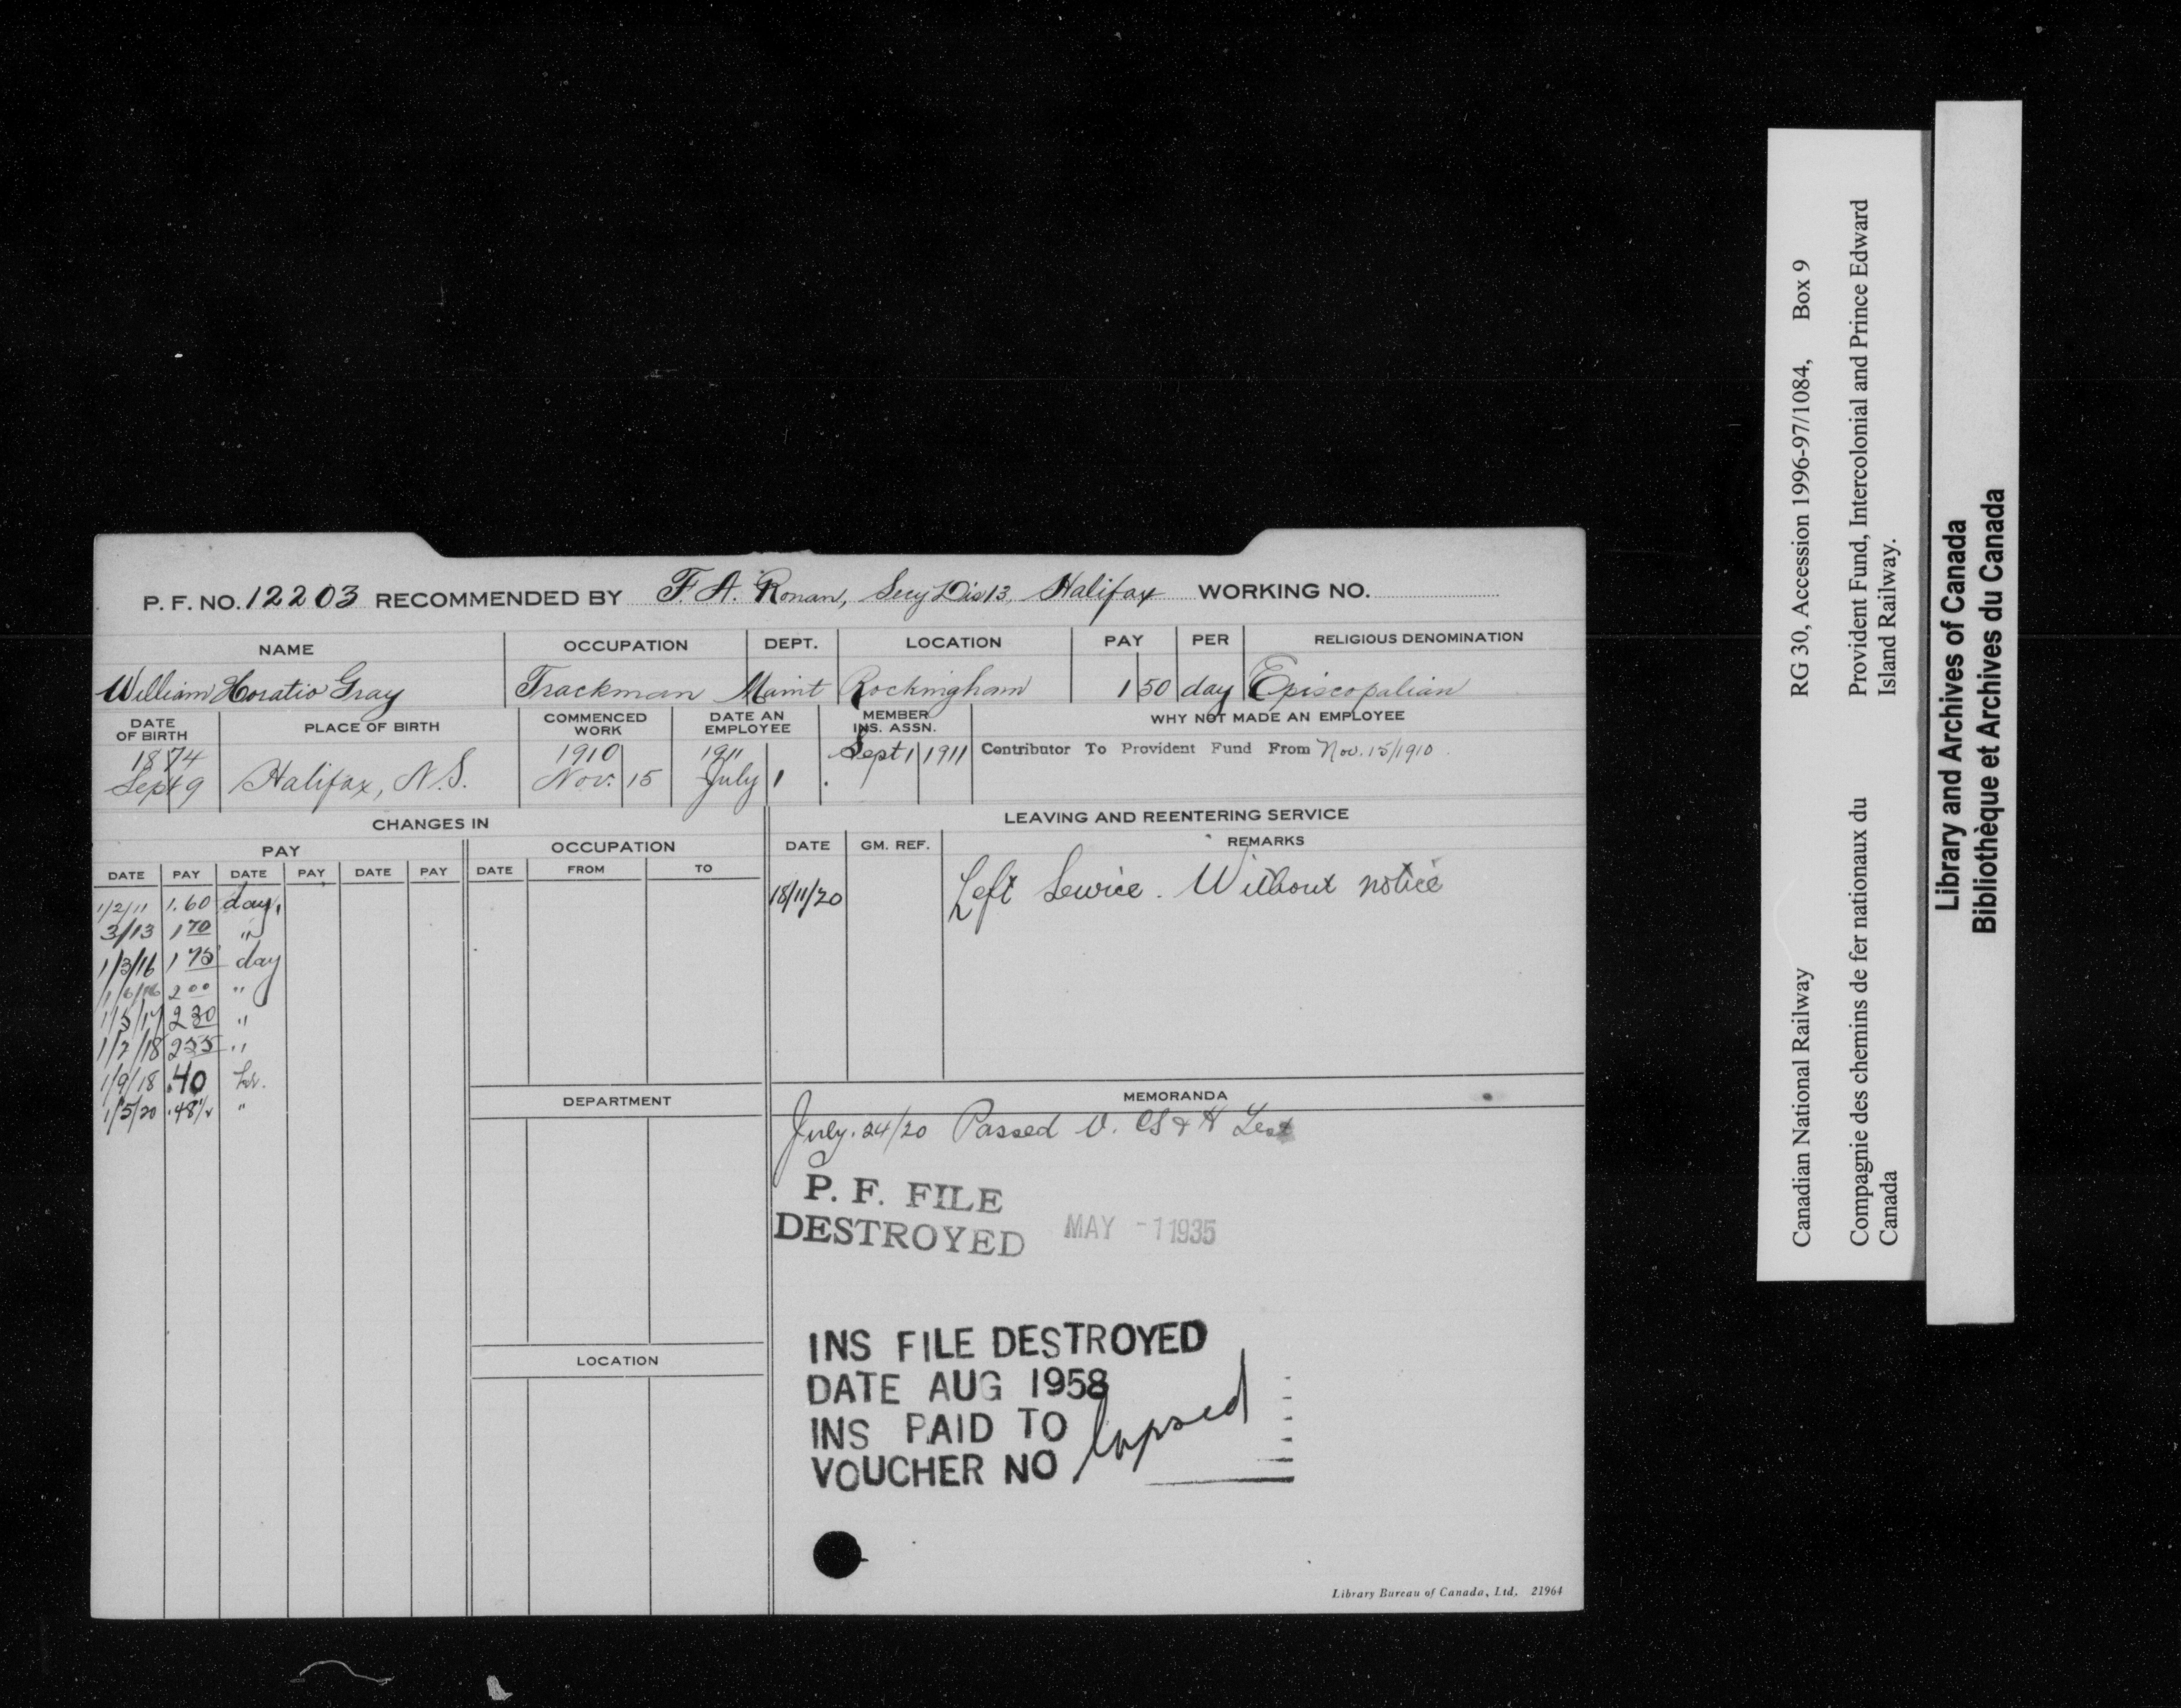 P. F. NO. 12203 RECOMMENDED BY F. A. Ronan, Secy Dis 13, Halifax WORKING NO.
NAME OCCUPATION DEPT. LOCATION PAY PER RELIGIOUS DENOMINATION
William Horatio Gray Trackman Maint Rockingham 1 50 day Episcopalian
DATE OF BIRTH PLACE OF BIRTH COMMENCED WORK DATE AN EMPLOYEE MEMBER INS. ASSN. WHY NOT MADE AN EMPLOYEE
1874 1910 1911 Sept 1 1911 Contributor To Provident Fund From Nov. 15/1910
Sept 9 Halifax, N.S. Nov. 15 July 1
CHANGES IN LEAVING AND REENTERING SERVICE
PAY OCCUPATION DATE GM. REF. REMARKS
DATE PAY DATE PAY DATE PAY DATE FROM TO
18/11/20 Left Service. Without notice
1/2/11 1.60 day,
3/13 1 70 "
1/3/16 1 75 day
1/6/16 2 00 "
1/5/17 2 30 "
1/7/18 2 55 "
1/9/18 .40 hr.
1/5/20 .48 1/2 "
DEPARTMENT
LOCATION
MEMORANDA
July. 24/20 Passed V. CS & H Test
P. F. FILE
DESTROYED MAY -1 1935
INS FILE DESTROYED
DATE AUG 1958
INS PAID TO
VOUCHER NO lapsed
Library Bureau of Canada, Ltd. 21964
Canadian National Railway RG 30, Accession 1996-97/1084, Box 9
Compagnie des chemins de fer nationaux du Provident Fund, Intercolonial and Prince Edward
Canada Island Railway.
Library and Archives of Canada
Bibliothèque et Archives du Canada